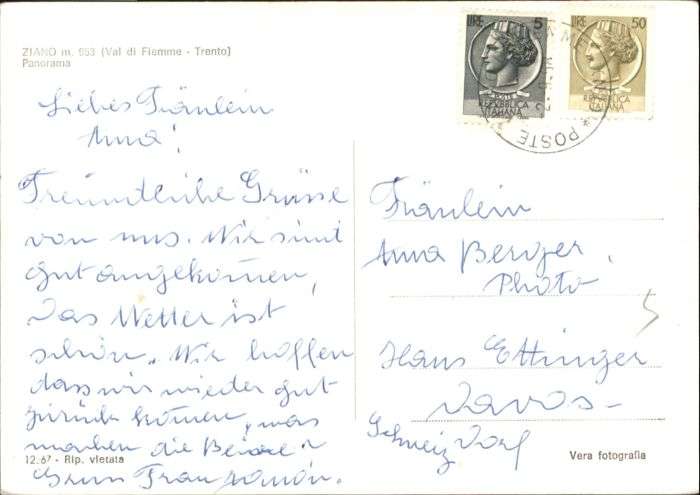 ZIANO m. 953 (Val di Fiemme - Trento)
Panorama
LIRE 5
POSTE
REPUBBLICA
ITALIANA
LIRE 50
POSTE
REPUBBLICA
ITALIANA
POSTE
Liebes Fräulein
Anna!
Freundliche Grüsse
von uns. Wir sind
gut angekommen,
Das Wetter ist
schön. Wir hoffen
dass wir wieder gut
zurück kommen, was
machen die
Gruss Frau
Fräulein
Anna Berger,
Photo
Hans Ettinger
Davos-
Schweiz Dorf
5
12.67 - Rip. vietata
Vera fotografia